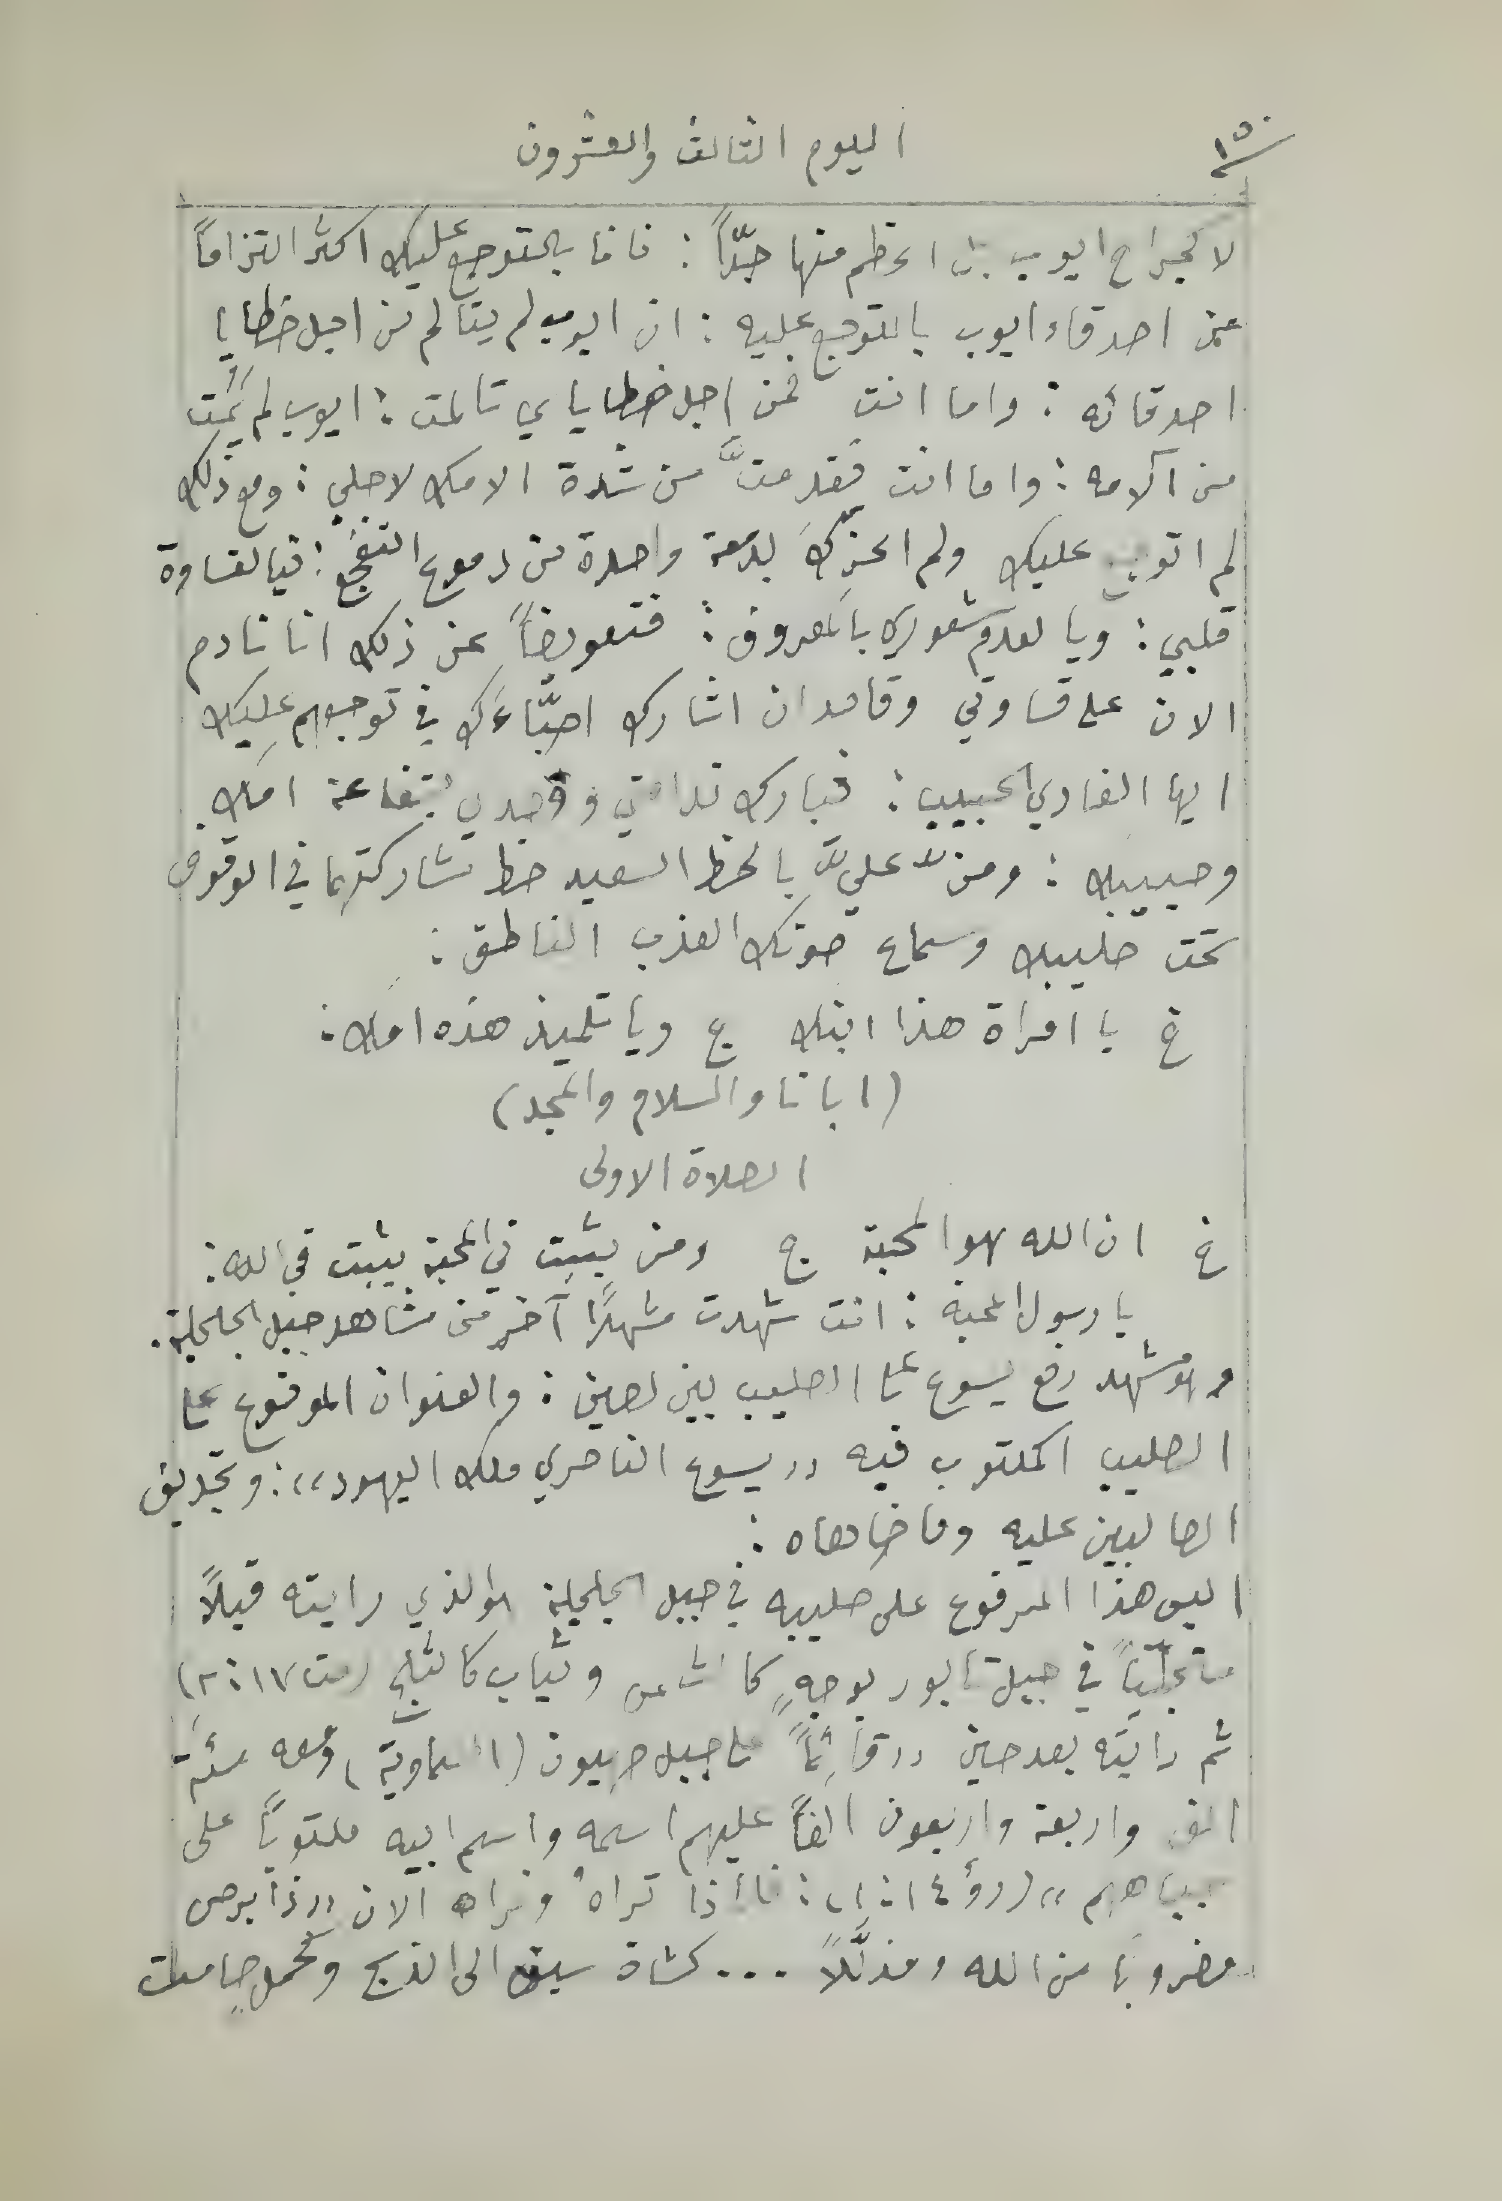 ١٥٠
اليوم الثالث والعشرون
لا كجراح ايوب بل اعظم منها جدّاً : فانا بالتوجع عليك اكثر التزاماً
من اصدقاء ايوب بالتوجع عليه : ان ايوب لم يتالم من اجل خطايا
اصدقائه : واما انت فمن اجل خطاياي تالمت : ايوب لم يَمُت
من آلامه : واما انت فقد متَّ من شدة الامك لاجلي : ومع ذلك
لم اتوجع عليك ولم اعزّكَ بدمعة واحدة من دموع التفجع : فيا لقساوة
قلبي : ويا لعدم شعوري بالمعروف : فتعويضاً عن ذلك انا نادم
الان على قساوتي وقاصد ان اشارك احبَّاءَك في توجعهم عليك
ايها الفادي الحبيب : فبارك ندامتي وقصدي بشفاعة امك
وحبيبك : ومنّ عليَّ بالحظ السعيد حظ مشاركتهما في الوقوف
تحت صليبك وسماع صوتك العذب الناطق :
خ يا امراة هذا ابنك ج ويا تلميذ هذه امك :
(ابانا والسلام والمجد)
الصلاة الاولى
خ ان الله هو المحبة ج ومن يثبت في المحبة يثبت في الله :
يا رسول المحبة : انت شهدت مشهدًا آخر من مشاهد جبل الجلجلة .
وهو مشهد رفع يسوع على الصليب بين لصين : والعنوان الموضوع على
الصليب المكتوب فيه ,, يسوع الناصري ملك اليهود ,, : وتجديف
الصالبين عليه وما ضاهاه :
اليس هذا المرفوع على صليبه في جبل الجلجلة هو الذي رايته قبلاً
متجلّياً في جبل تابور بوجهٍ كالشمس وثياب كالثلج (مت ١٧ : ٢)
ثم رايته بعد حين ,, قائماً على جبل صهيون (السماوية) ومعه مئة
الف واربعة واربعون الفاً عليهم اسمه واسم ابيه مكتوباً على
جباههم ,, (رؤ ١٤ : ١) : فاذا تراهُ وتراه الان ,, ذا برص
مضروبًا من الله ومذلَّلاً ... كشاة سيق الى الذبح وكحمل صامت